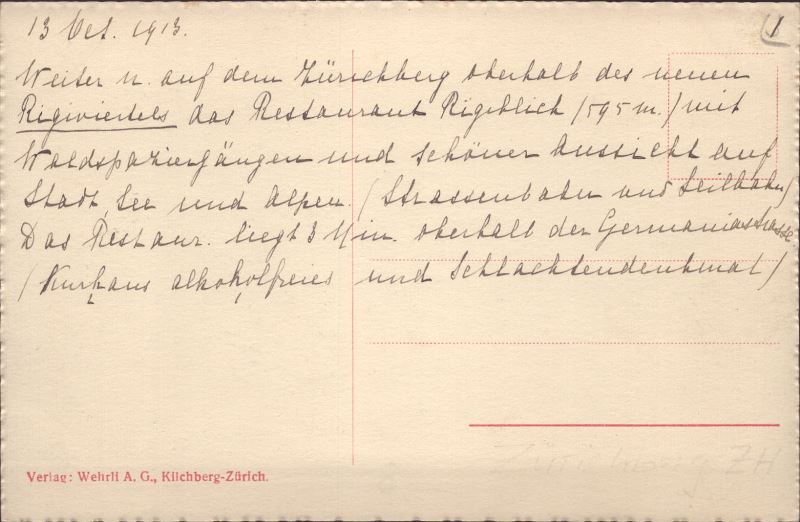 13 Oct. 1913.
1
Weiter n. auf dem Zürichberg oberhalb des neuen
Rigiviertels das Restaurant Rigiblick (595 m.) mit
Waldspaziergängen und schöner Aussicht auf
Stadt, See und Alpen. (Strassenbahn und Seilbahn)
Das Restaur. liegt 3 Min. oberhalb der Germaniastrasse
(Kurhaus alkoholfreies und Schlachtendenkmal)
Zürichberg ZH
Verlag: Wehrli A. G., Kilchberg-Zürich.